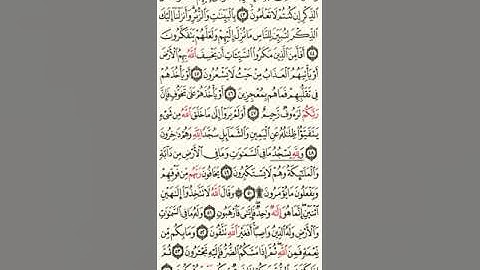 ٱلذِّكْرِ إِن كُنتُمْ لَا تَعْلَمُونَ ٤٣ بِٱلْبَيِّنَٰتِ وَٱلزُّبُرِ وَأَنزَلْنَآ إِلَيْكَ
ٱلذِّكْرَ لِتُبَيِّنَ لِلنَّاسِ مَا نُزِّلَ إِلَيْهِمْ وَلَعَلَّهُمْ يَتَفَكَّرُونَ
٤٤ أَفَأَمِنَ ٱلَّذِينَ مَكَرُوا۟ ٱلسَّيِّـَٔاتِ أَن يَخْسِفَ ٱللَّهُ بِهِمُ ٱلْأَرْضَ
أَوْ يَأْتِيَهُمُ ٱلْعَذَابُ مِنْ حَيْثُ لَا يَشْعُرُونَ ٤٥ أَوْ يَأْخُذَهُمْ
فِى تَقَلُّبِهِمْ فَمَا هُم بِمُعْجِزِينَ ٤٦ أَوْ يَأْخُذَهُمْ عَلَىٰ تَخَوُّفٍ فَإِنَّ
رَبَّكُمْ لَرَءُوفٌ رَّحِيمٌ ٤٧ أَوَلَمْ يَرَوْا۟ إِلَىٰ مَا خَلَقَ ٱللَّهُ مِن شَىْءٍ
يَتَفَيَّؤُا۟ ظِلَٰلُهُۥ عَنِ ٱلْيَمِينِ وَٱلشَّمَآئِلِ سُجَّدًا لِّلَّهِ وَهُمْ دَٰخِرُونَ
٤٨ وَلِلَّهِ يَسْجُدُ مَا فِى ٱلسَّمَٰوَٰتِ وَمَا فِى ٱلْأَرْضِ مِن دَآبَّةٍ
وَٱلْمَلَٰٓئِكَةُ وَهُمْ لَا يَسْتَكْبِرُونَ ٤٩ يَخَافُونَ رَبَّهُم مِّن فَوْقِهِمْ
وَيَفْعَلُونَ مَا يُؤْمَرُونَ ۩ ٥٠ وَقَالَ ٱللَّهُ لَا تَتَّخِذُوٓا۟ إِلَٰهَيْنِ
ٱثْنَيْنِ إِنَّمَا هُوَ إِلَٰهٌ وَٰحِدٌ فَإِيَّٰىَ فَٱرْهَبُونِ ٥١ وَلَهُۥ مَا فِى ٱلسَّمَٰوَٰتِ
وَٱلْأَرْضِ وَلَهُ ٱلدِّينُ وَاصِبًا أَفَغَيْرَ ٱللَّهِ تَتَّقُونَ ٥٢ وَمَا بِكُم مِّن
نِّعْمَةٍ فَمِنَ ٱللَّهِ ثُمَّ إِذَا مَسَّكُمُ ٱلضُّرُّ فَإِلَيْهِ تَجْـَٔرُونَ ٥٣